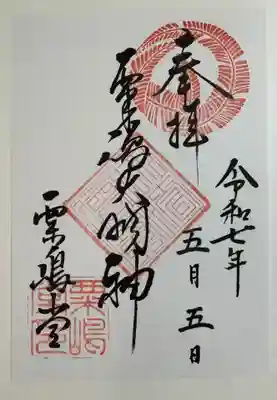 奉拝
令和七年
五月五日
粟嶋大明神
粟嶋堂
粟嶋堂